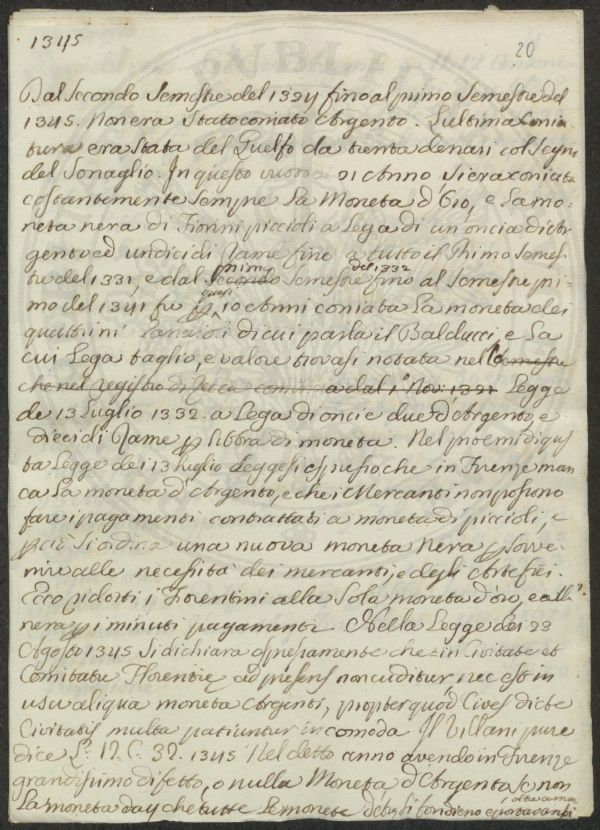 1345
20
Dal Secondo Semestre del 1324 fino al primo Semestre del
1345. Non era stato coniato Argento. L'ultima conia-
tura era stata del Guelfo da trenta denari col segno
del Sonaglio. In questo 21 Anno si era coniata
costantemente sempre la Moneta d'Oro, e la mo-
neta nera di Fiorini piccioli a Lega di un'oncia d'Ar-
gento ed undici di Rame fino a tutto il Primo Semes-
tre del 1331, e dal secondo primo Semestre del 1332 fino al Semestre pri-
mo del 1341 fu quasi p 10 Anni coniata la moneta dei
quattrini Lanaioli di cui parla il Balducci, e la
cui Lega taglio, e valore trovasi notata nella Semestre
che nel registro di Zecca dal 1° Nov: 1331 Legge
de 13 Luglio 1332. a Lega di oncie due d'Argento, e
dieci di Rame p libbra di moneta. Nel proemi di ques
ta Legge dei 13 Luglio Leggesi espresso che in Firenze man
ca la moneta d'Argento, e che i Mercanti non possono
fare i pagamenti contrattati a moneta di piccioli, e
p ciò si ordina una nuova moneta Nera p sovve-
nire alle necessità dei mercanti, e degli Artefici.
Ecco ridotti i Fiorentini alla sola moneta d'oro, e alla
nera p i minuti pagamenti. Nella Legge dei 23
Agosto 1345 si dichiara espresamente che in Civitate et
Comitatu Florentie ad presens non cuditur, nec est in
usu aliqua moneta Argenti, propter quod Cives dicte
Civitatis multa patiuntur incomoda. Il Villani pure
dice L. 12. C. 32. 1345 Nel detto anno avendo in Firenze
grandissimo difetto, o nulla Moneta d'Argento se non
la moneta da 4 che tutte le monete d'Ariento si fondieno e portavansi oltremare